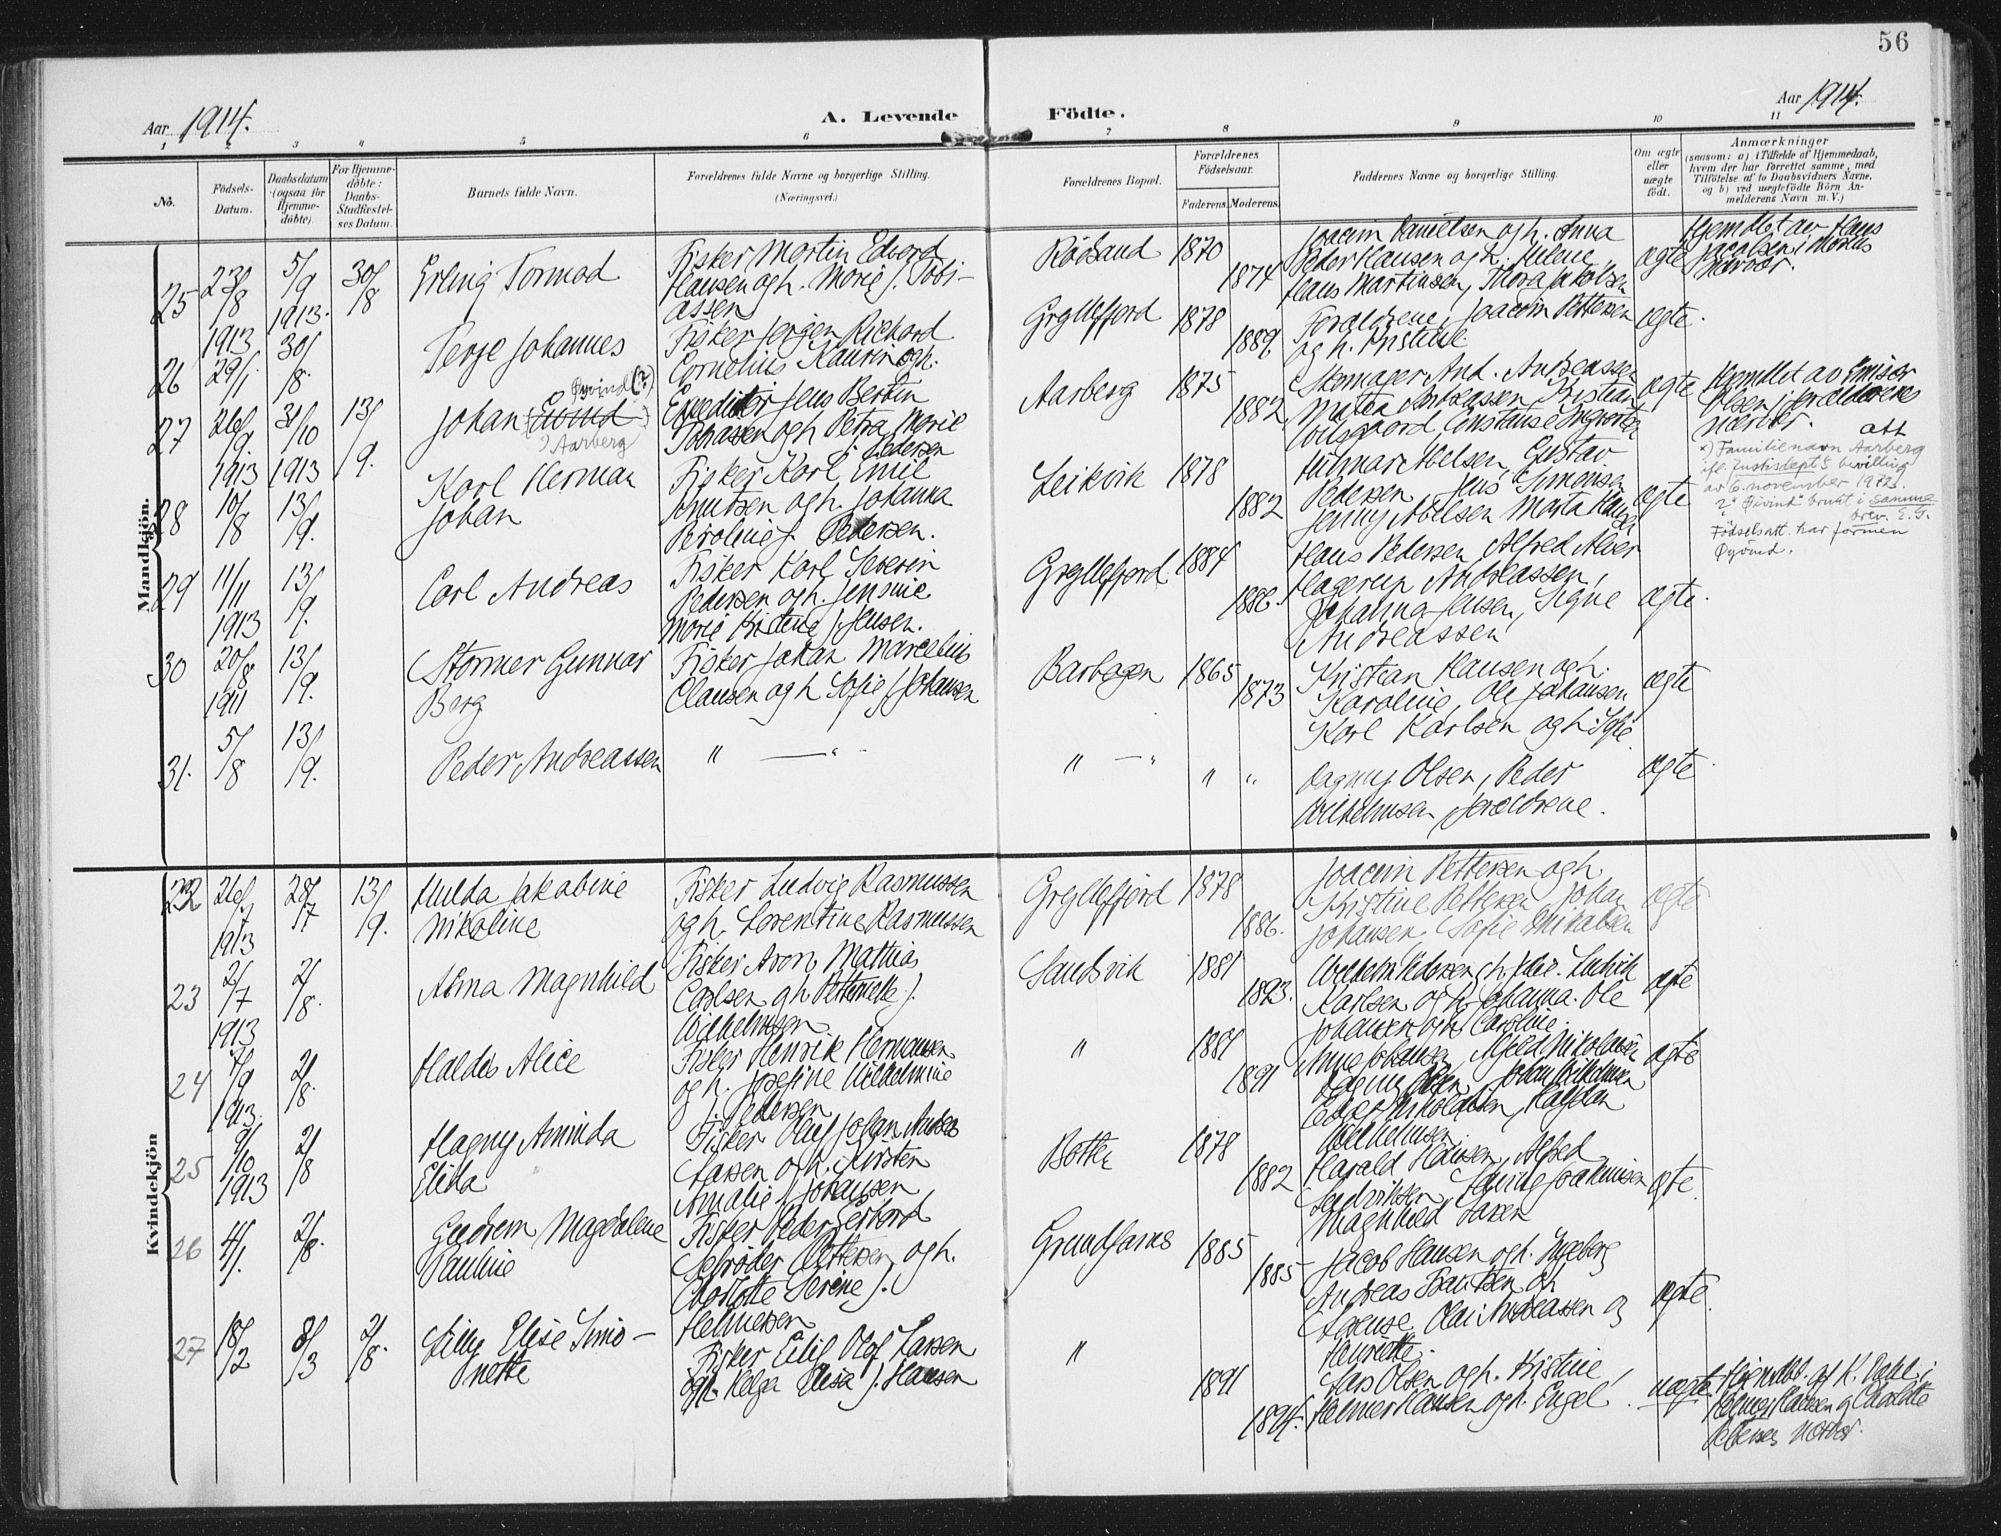 56
Aar 1914.
A. Levende
Födte.
Aar 1914.
1 2 3 4 5 6 7 8 9 10 11
No.
Födsels-
Datum.
Daabsdatum
(ogsaa for
Hjemme-
döbte).
For Hjemme-
döbte:
Daabs-
Stadfæstel-
ses Datum.
Barnets fulde Navn.
Forældrenes fulde Navne og borgerlige Stilling.
(Næringsvei.)
Forældrenes Bopæl.
Forældrenes
Födselsaar.
Faderens.
Moderens.
Faddernes Navne og borgerlige Stilling.
Om ægte
eller
uægte
født.
Anmærkninger
(saasom: a) i Tilfælde af Hjemmedaab,
hvem der har forrettet samme, med
Tilföielse af to Daabsvidners Navne,
og b) ved uægtefödte Börn An-
melderens Navn m. V.)
Mandkjön.
25
23/8 1913
5/9 1913.
30/8
Erling Tormod
Fisker Martin Edvard
Hansen og h. Marie f. Tobi-
assen
Rödsand
1870
1874
Joacim Danielsen og h. Anna
Peder Hansen og h. Helene,
Hans Martinsen, Thora Jakobsen
ægte
Hjemdöbt av Hans
Jacobsen i Moens
nærvær.
26
29/1
30/8
Terje Johannes
Fisker Jørgen Richard
Cornelius Kaurin og h.
Gryllefjord
1878
1889
Forældrene, Joacim Pettersen
og h. Kristine
ægte.
27
26/9 1913
31/10 1913
13/9.
Johan (Eivind)
Øyvind (?)
Aarberg
Expeditör Jens Bertin
Tobiassen og h. Petra Marie
f. Pedersen
Aarberg
1875
1882
Skomager And. Andreassen
Matea Andreassen Kristian
ægte
Hjemdöbt av Emissær
Olsen i Forældrenes
nærvær.
att
x) Familienavn Aarberg
ifl. Justisdept's bevilling
av 6. november 1922.
2) "Øivind" brukt i samme
brev. E. G.
Fødselsatt. har formen
Øyvind.
28
10/8
13/9.
Karl Herman
Johan
Fisker Karl Emil
Knutsen og h. Johanna
Peroline f. Pedersen.
Leikvik
1878
1882
Hilmar Abelsen, Gustav
Pedersen, Jens Simonsen
Jenny Abelsen Marta Hansen
ægte
29
11/11 1913
13/9.
Carl Andreas
Fisker Karl Severin
Pedersen og h. Jensine
Marie Kristine f. Jensen.
Gryllefjord
1884
1886.
Hans Pedersen Alfred Alver
Hagerup Andreassen,
Johanna Jensen, Signe
Andreassen
ægte.
30
20/8 1911
13/9.
Stormer Gunnar
Berg
Fisker Johan Marcelius
Clausen og h. Sofie f. Johansen
Barbogen
1865
1873
Kristian Hansen og h.
Karoline, Ole Johansen
Karl Karlsen og h. Sofie.
ægte
31.
5/8
13/9.
Peder Andreassen
" — "
" — "
" "
Dagny Olsen, Peder
Vilhelmsen, forældrene.
ægte
Kvindekjön
22
26/7 1913
28/7
13/9.
Hulda Jakobine
Nikoline
Fisker Ludvig Rasmussen
og h. Lorentine Rasmussen
Gryllefjord
1878
1886.
Joacim Pettersen og h
Kristine Pettersen Johan
Johansen, Sofie Mikalsen
ægte
23
2/7 1913
2/8.
Alma Magnhild
Fisker Aron Mathias
Carlsen og h. Petternelle f.
Vilhelmsen
Sandvik
1881
1893.
Karlsen og h. Johanna. Ole
Johansen og h. Caroline.
ægte
24
7/9 1913.
2/8.
Haldis Alice
Fisker Henrik Hermansen
og h. Josefine Vilhelmine
f. Pedersen
"
1881
1891
Anne Johansen, Alfred Nikolaisen
Dagny Olsen, Johan Vilhelmsen
Edgar Nikolaisen, Halfdan
Vilhelmsen
ægte
25
9/10 1913
2/8
Hagny Aminda
Elida
Fisker Oluf Johan Andreas
Larsen og h. Kirsten
Amalie f. Johansen
Botten
1878
1882
Harald Hansen, Alfred
Ludviksen, Laura Joakimsen
Magnhild Larsen
ægte.
26
4/1.
2/8.
Gudrun Magdalene
Pauline
Fisker Peder Gerhard
Schrøder Pettersen og h.
Charlotte Serine f.
Helmersen
Grundfarnes
1885
1885
Jacob Hansen og h. Ingeborg
Andreas Frantzen og
Lorense, Olai Andreassen og
Henriette.
ægte.
27
18/2
8/3
2/8.
Lilly Elise Simo-
nette
Fisker Eilif Olaf Larsen
og h. Helga Elisa f. Hansen
"
1891
1894.
Lars Olsen og h. Kristine,
Helmer Hansen og h. Engel
uægte
Hjemdöbt. af K. Dahl i
Helmer Hansen og Charlotte
Pettersens nærvær.